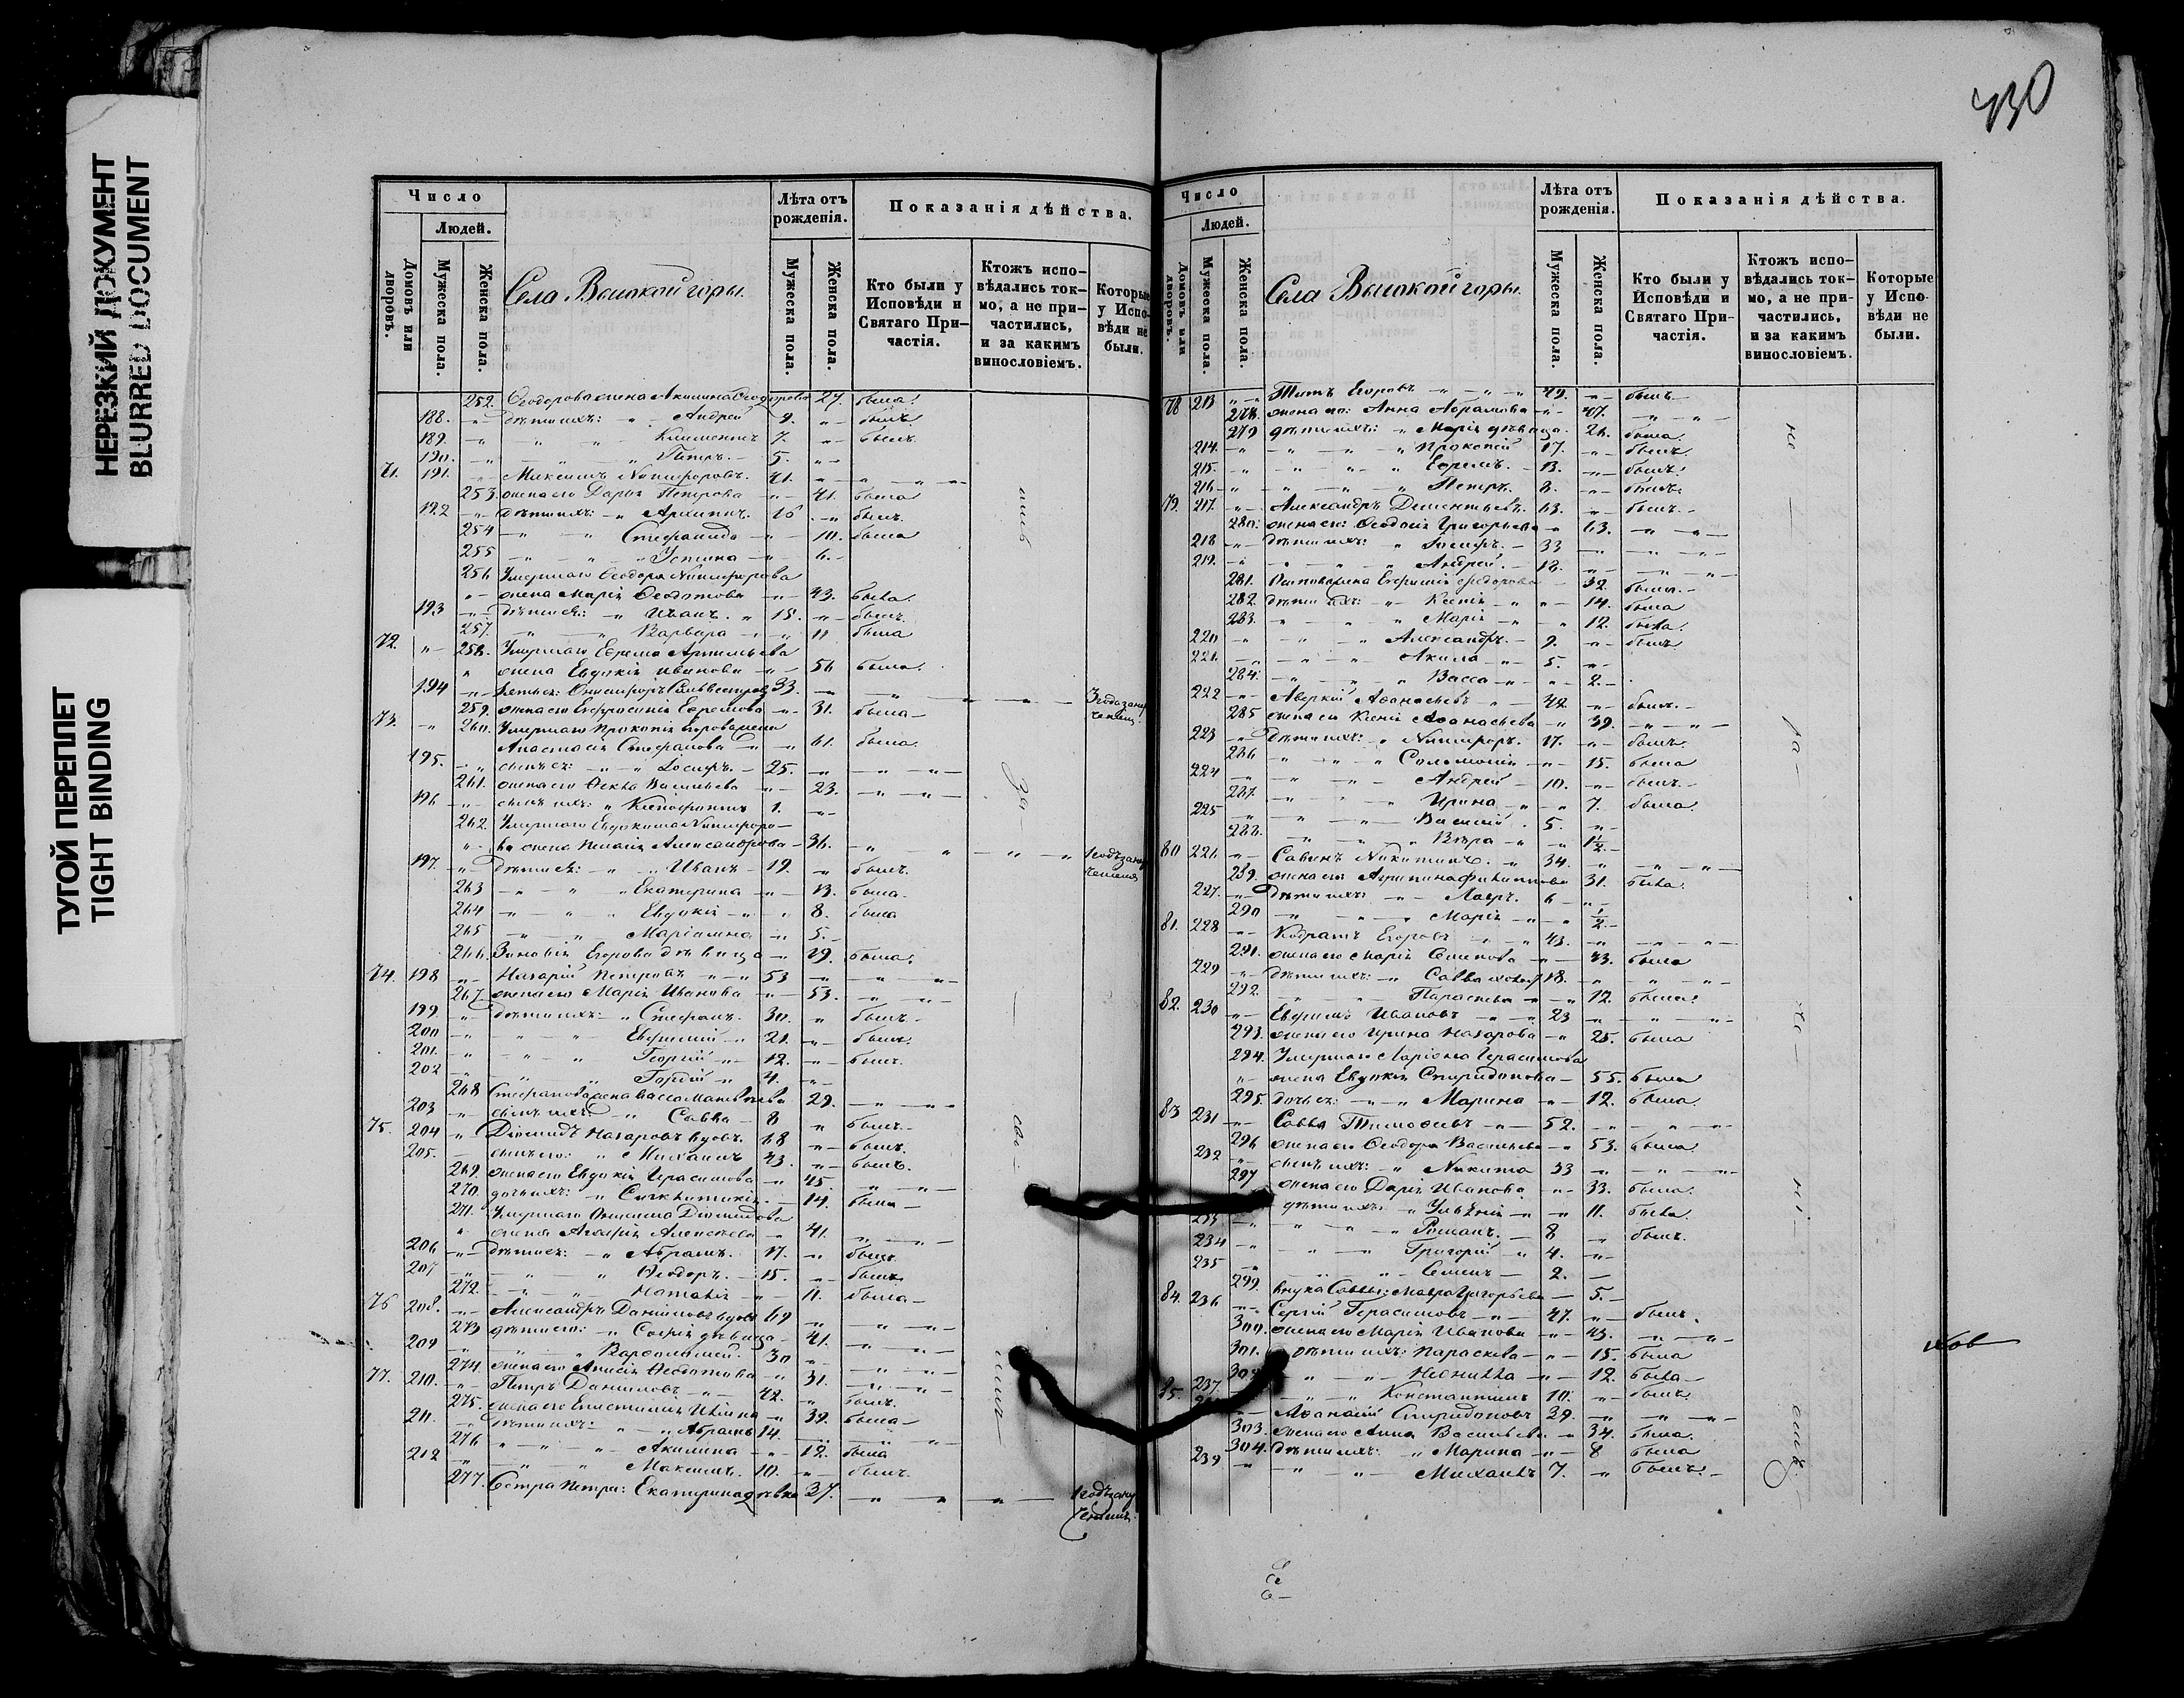 НЕРЕЗКИЙ ДОКУМЕНТ
BLURRED DOCUMENT
ТУГОЙ ПЕРЕПЛЕТ
TIGHT BINDING
430
Число
Людей.
Домовъ или дворовъ.
Мужеска пола.
Женска пола.
Села Высокой горы.
Лѣта отъ рожденія.
Мужеска пола.
Женска пола.
Показанія дѣйства.
Кто были у Исповѣди и Святаго При-частія.
Ктожъ испо-вѣдались ток-мо, а не при-частились, и за какимъ винословіемъ.
Которые у Испо-вѣди не были.
252. Ѳеодорова жена Акилина Ѳеодорова 27. была
188. дѣти ихъ: Андрей 9. былъ
189. Климентъ 7. былъ
190. Петръ 5.
71. 191. Максимъ Никифоровъ. 41.
253. жена его Дарья Петрова 41. была
192 дѣти ихъ: Архипъ. 16 былъ.
254 Стефанида 10. была
255 Устина 6.
256 Умершаго Ѳеодора Никифорова
жена Марія Ѳеодотова 43. была.
193 дѣти ея: Иванъ. 18. былъ.
257. Варвара 11 была
72. 258. Умершаго Ефрема Артемьева
жена Евдокія Иванова 56 была.
194 зять ея: Онисифоръ Сильвестровъ 33.
259. жена его Евфросинія Ефремова 31. была
73. 260. Умершаго Прокопія Егорова жена
Анастасія Стефанова 61. была.
195. сынъ ея: Іосифъ. 25.
261. жена его Ѳекла Васильева 23.
196 сынъ ихъ: Ксенофонтъ 1.
262. Умершаго Евдокима Никифоро-
ва жена Пелагія Александрова 36.
197. дѣти ея: Иванъ 19. былъ.
263 Екатерина 13. была.
264 Евдокія 8. была
265 Маріамна 5.
266. Зиновія Егорова дѣвица 29. была.
74. 198 Назарій Петровъ 53
267. жена его Марія Иванова 53.
199. дѣти ихъ: Стефанъ. 30. былъ.
200 Евфимій 21. былъ.
201. Георгій 12. былъ.
202 Гордій 4.
268 Стефанова жена Васса Матвѣева 29.
203 сынъ ихъ Савва 8 былъ.
75. 204 Діомидъ Назаровъ вдовъ. 68 былъ.
205. сынъ его: Михаилъ 43. былъ.
269. жена его Евдокія Герасимова 45.
270. дочь ихъ: Синклитикія 14. была
271. Умершаго Діомидова
жена Агафія Алексѣева 41.
206 дѣти ея: Абрамъ. 17. былъ.
207 Ѳеодоръ. 15. былъ
272. Наталія 11. была
76 208. Александръ Даниловъ вдовъ 69
273 дѣти его: Софія дѣвица 41.
209 Варѳоломей. 30
274. жена его Анисія Ѳеодотова 31.
77. 210. Петръ Даниловъ 42. былъ.
275. жена его 39. была
211. дѣти ихъ: Абрамъ 14.
276 Акилина 12. была
212 Максимъ. 10. былъ.
277. Сестра Петра: Екатерина дѣвка 37.
Число
Людей.
Домовъ или дворовъ.
Мужеска пола.
Женска пола.
Села Высокой горы.
Лѣта отъ рожденія.
Мужеска пола.
Женска пола.
Показанія дѣйства.
Кто были у Исповѣди и Святаго При-частія.
Ктожъ испо-вѣдались ток-мо, а не при-частились, и за какимъ винословіемъ.
Которые у Испо-вѣди не были.
78 213 Титъ Егоровъ 49. былъ
278. жена его: Анна Абрамова 47.
279 дѣти ихъ: Марія дѣвица. 26. была.
214. Прокопій 17. былъ.
215. Ефремъ. 13. былъ.
216 Петръ. 8. былъ
79. 217. Александръ Дементьевъ. 63. былъ.
280. жена его: Ѳеодосія Григорьева 63.
218 дѣти ихъ: Іосифъ. 33
219. Андрей. 18.
281. Осипова жена Евфимія Ѳедорова 32. была.
282. дѣти ихъ: Ксенія 14. была
283. Марія 12. была.
220 Александръ. 9. былъ
221. Акила 5.
284. Васса 2.
222 Аверкій Аѳанасьевъ 42 былъ.
285 жена его Ксенія Аѳанасьева 39.
223 дѣти ихъ: Никифоръ. 17. былъ.
286 Соломонія 15. была
224 Андрей 10. былъ.
287. Ирина 7. была.
225 Василій 5.
288. Вѣра 1/2.
80 226. Савинъ Никитинъ. 34.
289. жена его Агрипина Филиппова 31. была.
227. дѣти ихъ: Лавръ. 6
290 Марія 1/2.
81. 228 Кодратъ Егоровъ 43.
291. жена его Марія Семенова 43. была
229 дѣти ихъ: Савва холостъ 18.
292. Параскева 12. была.
82. 230 Евфимъ Ивановъ 23
293. жена его Ирина Назарова 25. была
294. Умершаго Ларіона Герасимова
жена Евдокія Спиридонова 55. была
295. дочь ея: Марина 12. была.
83 231 Савва Тимоѳеевъ 52.
296 жена его Ѳеодора Васильева 53. была
232 сынъ ихъ: Никита 33
297 жена его Дарія Иванова 33. была.
дѣти ихъ: Ульянія 11. была.
Романъ. 8 былъ.
234 Григорій 4.
235 Семенъ 2.
299 внука Саввы: Мавра Григорьева 5.
84. 236 Сергій Герасимовъ 47. былъ.
300. жена его Марія Иванова 43.
301. дѣти ихъ: Параскева 15. была
302 12. была
237. Константинъ 10. былъ
85. Аѳанасій Спиридоновъ 39.
303. жена его Анна Васильева 34. была.
304. дѣти ихъ: Марина 8 была
239 Михаилъ 7. былъ.